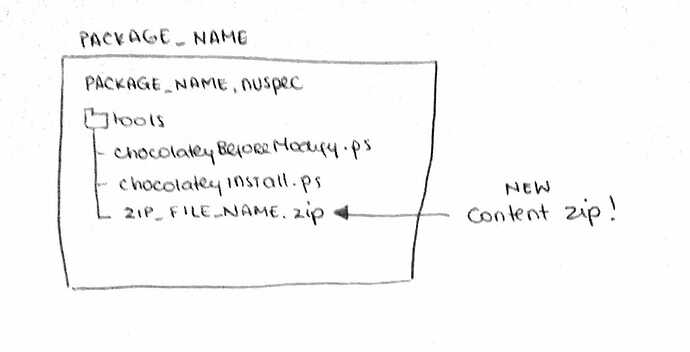 PACKAGE_NAME
PACKAGE_NAME.nuspec
tools
chocolateyBeforeModify.ps
chocolateyInstall.ps
ZIP_FILE_NAME.zip
NEW
content zip!